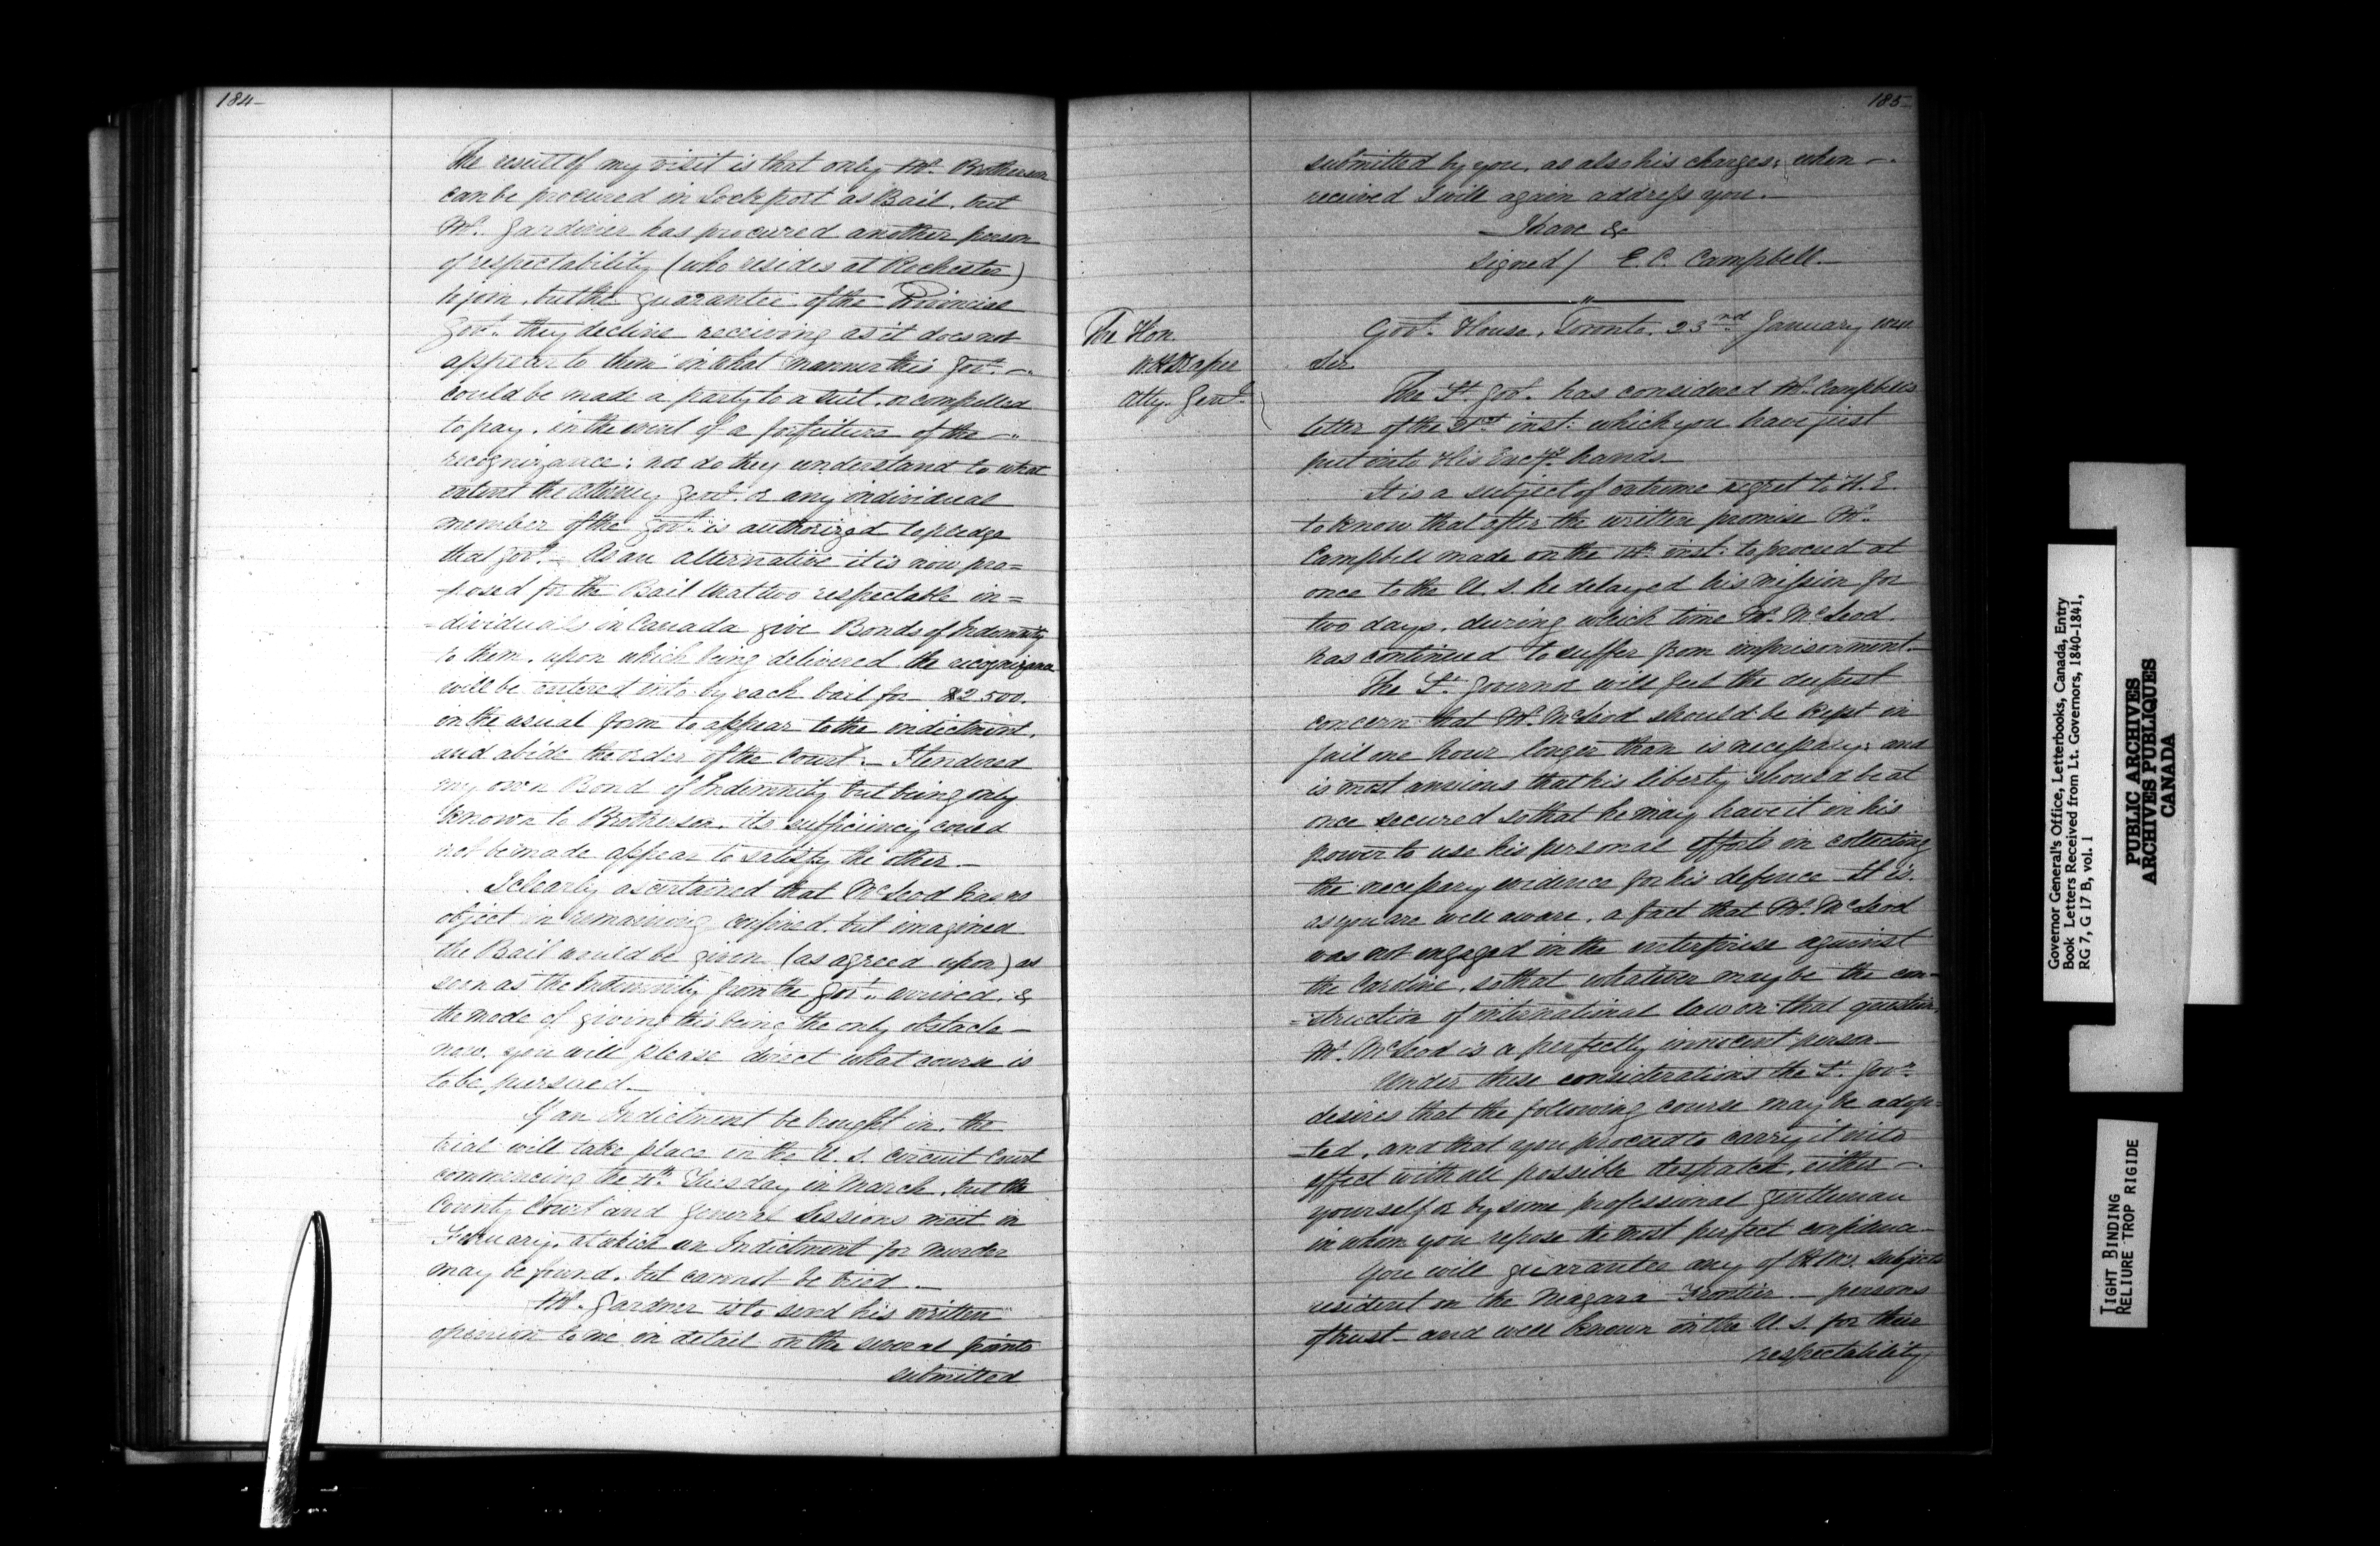 184-
The result of my visit is that only Mr. Brotherson
can be procured in Lockport as Bail, but
Mr. Gardinier has procured another person
of respectability (who resides at Rochester)
to join, but the guarantee of the Provincial
Govt. they decline receiving as it does not
appear to them in what manner this Govt. -
could be made a party to a suit, or compelled
to pay, in the event of a forfeiture of the -
recognizance; nor do they understand to what
extent the Attorney Genl. or any individual
member of the Govt. is authorized to pledge
that Govt. - As an alternative it is now pro=
posed for the Bail that two respectable in=
=dividuals in Canada give Bonds of Indemnity
to them, upon which being delivered the recognizance
will be entered into by each bail for $2500.
in the usual form to appear to the indictment,
and abide the order of the Court. - I tendered
my own Bond of Indemnity but being only
known to Brotherson, its sufficiency could
not be made appear to satisfy the other. -
I clearly ascertained that McLeod has no
object in remaining confined, but imagined
the Bail would be given (as agreed upon) as
soon as the Indemnity from the Govt. arrived, &
the mode of giving this being the only obstacle -
now, you will please direct what course is
to be pursued. -
If an Indictment be brought in, the
trial will take place in the U. S. Circuit Court
commencing the 4th. Tuesday in March, but the
County Court and General Sessions meet in
February, at which an Indictment for murder
may be found, but cannot be tried. -
Mr. Gardner is to send his written
opinion to me in detail on the several points
submitted
185-
submitted by you, as also his charges; when -
received I will again address you. -
I have &c
Signed/ E. C. Campbell. -
The Hon.
W H Draper
Atty. Genl.
Govt. House, Toronto, 23nd January
Sir
The Lt. Govr. has considered Mr. Campbell's
letter of the 21st inst: which you have just
put into His Excys. hands. -
It is a subject of extreme regret to H. E.
to know that after the written promise Mr.
Campbell made on the inst: to proceed at
once to the U. S. he delayed his mission for
two days, during which time Mr. McLeod
has continued to suffer from imprisonment. -
The Lt. Governor will feel the deepest
concern that Mr. McLeod should be kept in
jail one hour longer than is necessary; and
is most anxious that his liberty should be at
once secured so that he may have it in his
power to use his personal efforts in collecting
the necessary evidence for his defence. It is,
as you are well aware, a fact that Mr. McLeod
was not engaged in the enterprise against
the Caroline, so that whatever may be the con-
=struction of international law on that question,
Mr. McLeod is a perfectly innocent person -
Under these considerations the Lt. Govr.
desires that the following course may be adop-
=ted, and that you proceed to carry it into
effect with all possible despatch, either -
yourself or by some professional gentleman
in whom you repose the most perfect confidence -
You will guarantee any of H. M's. subjects
resident on the Niagara Frontier - persons
of trust - and well known in the U. S. for their
respectability
Governor General's Office, Letterbooks, Canada, Entry
Book Letters Received from Lt. Governors, 1840-1841,
RG 7, G 17 B, vol. 1
PUBLIC ARCHIVES
ARCHIVES PUBLIQUES
CANADA
TIGHT BINDING
RELIURE TROP RIGIDE